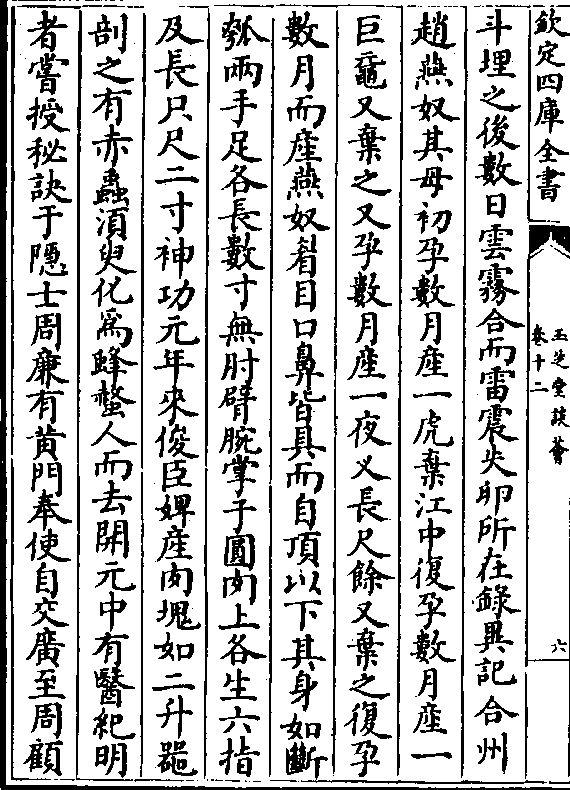 欽定四庫全書
玉芝堂談薈
卷十二
六
斗埋之後數日雲霧合而雷震失卵所在錄異記合州
趙燕奴其母初孕數月產一虎棄江中復孕數月產一
巨黿又棄之又孕數月產一夜义長尺餘又棄之復孕
數月而產燕奴眉目口鼻皆具而自項以下其身如斷
瓠兩手足各長數寸無肘臂腕掌于圓肉上各生六指
及長只尺二寸神功元年來俊臣婢產肉塊如二升器
剖之有赤蟲湏臾化為蜂螫人而去開元中有醫紀明
者嘗授秘訣于隱士周廉有黃門奉使自交廣至周顧